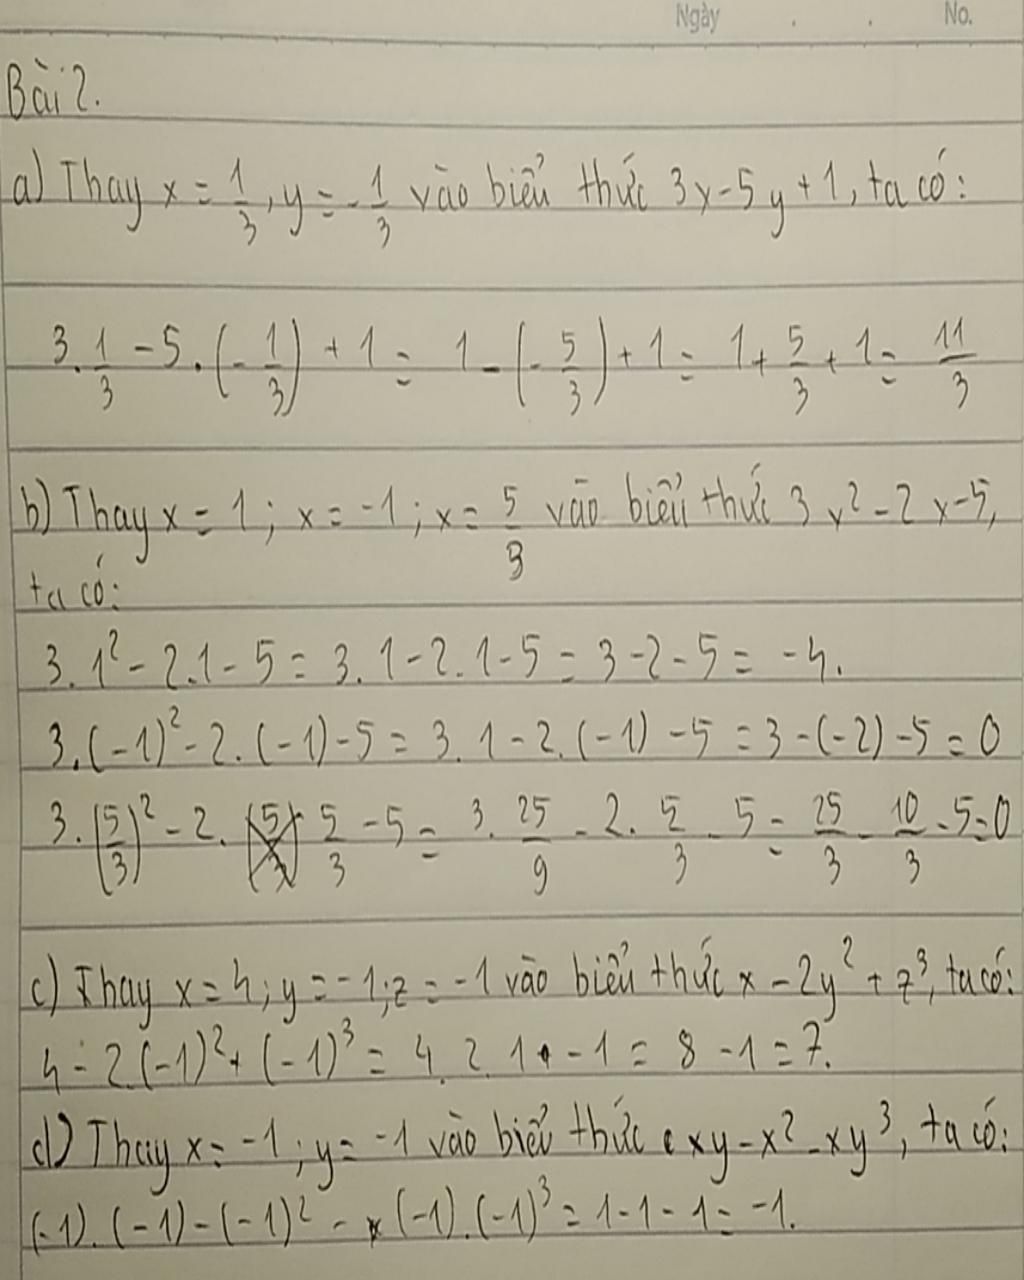 Ngày . . No.
Bài 2.
a) Thay x = 1/3, y = -1/3 vào biểu thức 3x - 5y + 1, ta có:
3. 1/3 - 5. (-1/3) + 1 = 1 - (-5/3) + 1 = 1 + 5/3 + 1 = 11/3
b) Thay x = 1; x = -1; x = 5/3 vào biểu thức 3x² - 2x - 5,
ta có:
3. 1² - 2.1 - 5 = 3. 1 - 2. 1 - 5 = 3 - 2 - 5 = -4.
3. (-1)² - 2. (-1) - 5 = 3. 1 - 2. (-1) - 5 = 3 - (-2) - 5 = 0
3. (5/3)² - 2. 5/3 - 5 = 3. 25/9 - 2. 5/3 - 5 = 25/3 - 10/3 - 5 = 0
c) Thay x = 4; y = -1; z = -1 vào biểu thức x - 2y² + z³, ta có:
4 - 2.(-1)² + (-1)³ = 4. 2. 1 - 1 = 8 - 1 = 7.
d) Thay x = -1; y = -1 vào biểu thức xy - x² - xy³, ta có:
(-1). (-1) - (-1)² - (-1). (-1)³ = 1 - 1 - 1 = -1.